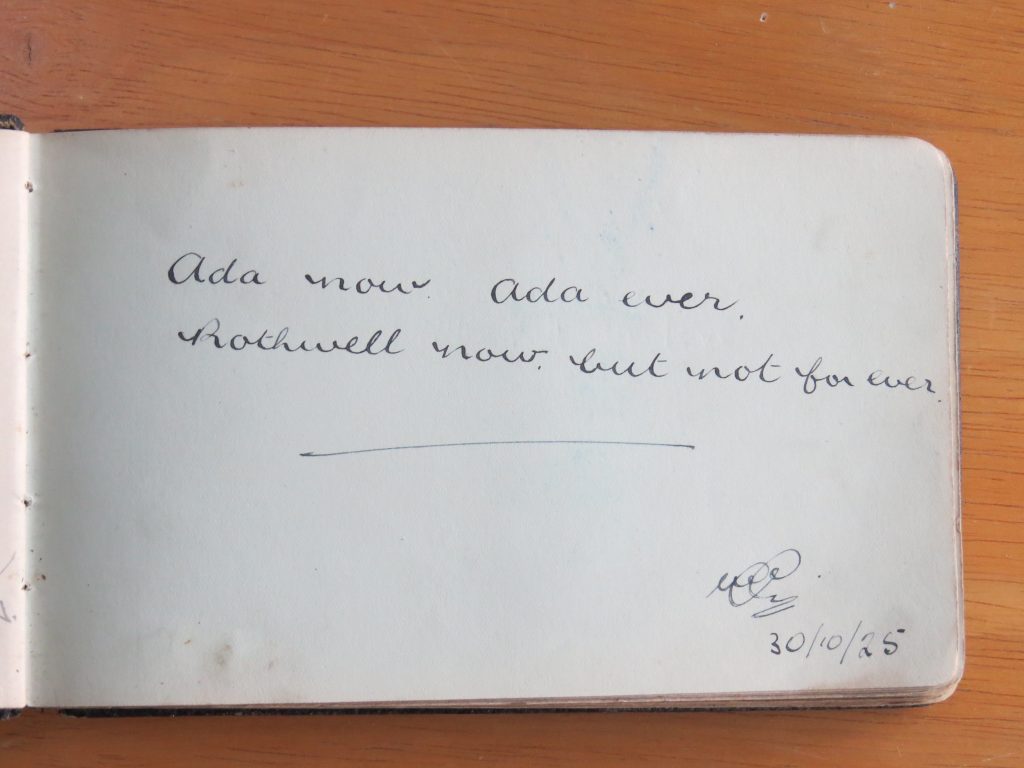 Ada now. Ada ever.
Rothwell now. but not for ever.
30/10/25